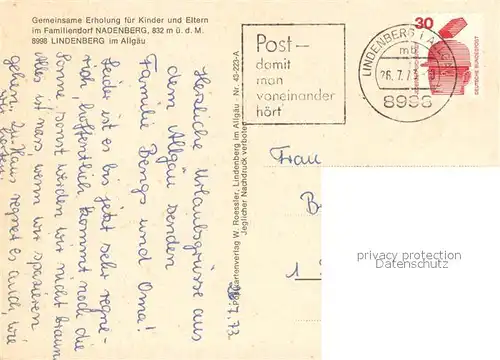 Gemeinsame Erholung für Kinder und Eltern
im Familiendorf NADENBERG, 832 m ü. d. M.
8998 LINDENBERG im Allgäu
Herzliche Urlaubsgrüsse aus
dem Allgäu senden
Familie Bongs und Oma!
Leider ist es bis jetzt sehr regne-
risch, hoffentlich kommt noch die
Sonne, sonst werden wir nicht braun
Alles ist nass, wenn wir spazieren
gehen. Zu Haus regnet es auch, wie
wir
26.7.73
Postkartenverlag W. Roessler, Lindenberg im Allgäu · Nr. 43-223-A
Jeglicher Nachdruck verboten
Post –
damit
man
voneinander
hört
LINDENBERG i ALLGÄU
mb
26.7.73
8998
30
DEUTSCHE BUNDESPOST
Frau
B
1
privacy protection
Datenschutz